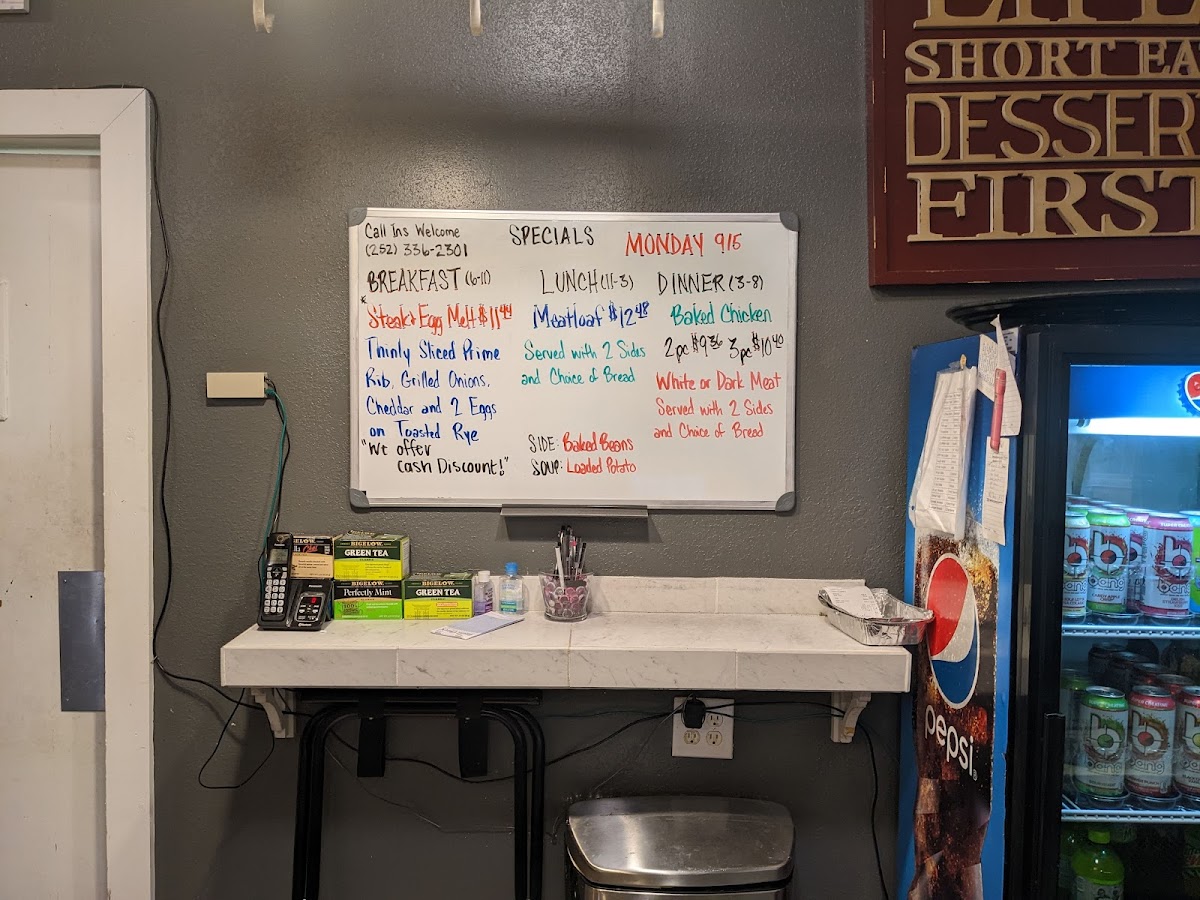 Call Ins Welcome
(252) 336-2301
SPECIALS
MONDAY 9/5
BREAKFAST (6-11)
*
Steak & Egg Melt $11.44
Thinly Sliced Prime
Rib, Grilled Onions,
Cheddar and 2 Eggs
on Toasted Rye
"We offer
Cash Discount!"
LUNCH (11-3)
Meatloaf $12.48
Served with 2 Sides
and Choice of Bread
SIDE: Baked Beans
SOUP: Loaded Potato
DINNER (3-8)
Baked Chicken
2pc $9.36 3pc $10.40
White or Dark Meat
Served with 2 Sides
and Choice of Bread
SHORT EA
DESSER
FIRST
BIGELOW
GREEN TEA
BIGELOW
Perfectly Mint
BIGELOW
GREEN TEA
pepsi
bang
bang
bang
bang